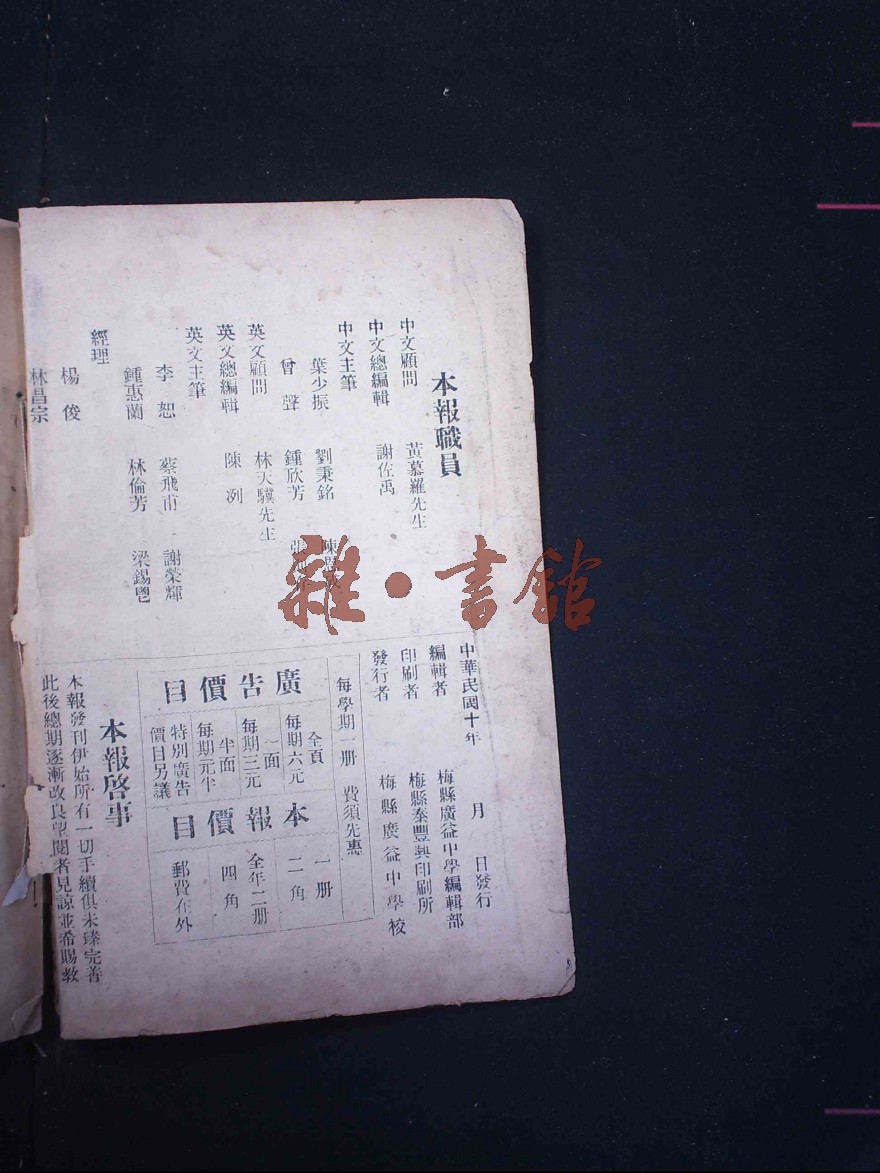 本報職員
中文顧問 黃慕羅先生
中文總編輯 謝佐禹
中文主筆
葉少振 劉秉銘 陳
曾聲 鍾欣芳 張
英文顧問 林天驥先生
英文總編輯 陳洌
英文主筆
李恕 蔡飛甫 謝榮輝
鍾惠蘭 林倫芳 梁錫鬯
經理
楊俊
林昌宗
中華民國十年 月 日發行
編輯者 梅縣廣益中學編輯部
印刷者 梅縣泰豐興印刷所
發行者 梅縣廣益中學校
每學期一册 費須先惠
廣告價目
全頁
每期六元
一面
每期三元
半面
每期二元半
特別廣告
價目另議
本報價目
一册
二角
全年二册
四角
郵費在外
本報啓事
本報發刊伊始所有一切手續俱未臻完善
此後總期逐漸改良望閱者見諒並希賜教
雜·書館